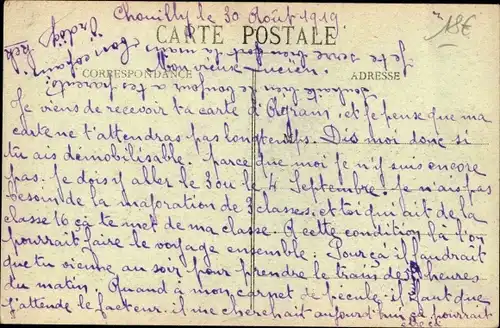 Chouilly le 30 Août 1919
CARTE POSTALE
18E
Je te serre bien fort la main
bon copain
Mon vieux Lucien.
CORRESPONDANCE
ADRESSE
Souhaite bien le bonjour à tes parents.
Je viens de recevoir ta carte d'Ogram, et je pense que ma
carte ne t'attendras pas longtemps. Dis moi donc si
tu ais démobilisable. parce que moi je n'y suis encore
pas. Je dois y aller le 3 ou le 4 Septembre. Je n'ais pas
besoin de la majoration de 3 classes, et toi qui ait de la
classe 16 ça te met de ma classe. A cette condition là l'on
pourrait faire le voyage ensemble. Pour ça il faudrait
que tu vienne au soir pour prendre le train de heures
du matin. Quand à mon carnet de pécule. il faut que
j'attende le facteur. il me cherchait aujourd'hui ça pourrait